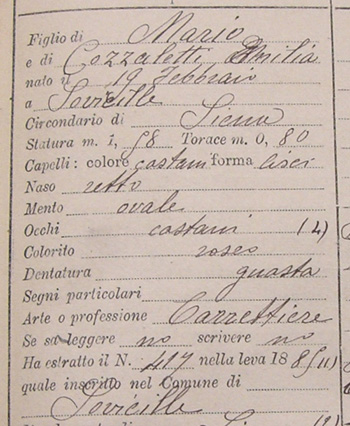 Figlio di Mario
e di Cozzaletti Emilia
nato il 19 Febbraio
a Sovicille
Circondario di Siena
Statura m. 1, 58 Torace m. 0, 80
Capelli: colore castani forma lisci
Naso retto
Mento ovale
Occhi castani (4)
Colorito roseo
Dentatura guasta
Segni particolari
Arte o professione Carrettiere
Se sa leggere no scrivere no
Ha estratto il N. 417 nella leva 188 (11)
quale inscritto nel Comune di
Sovicille
(2)